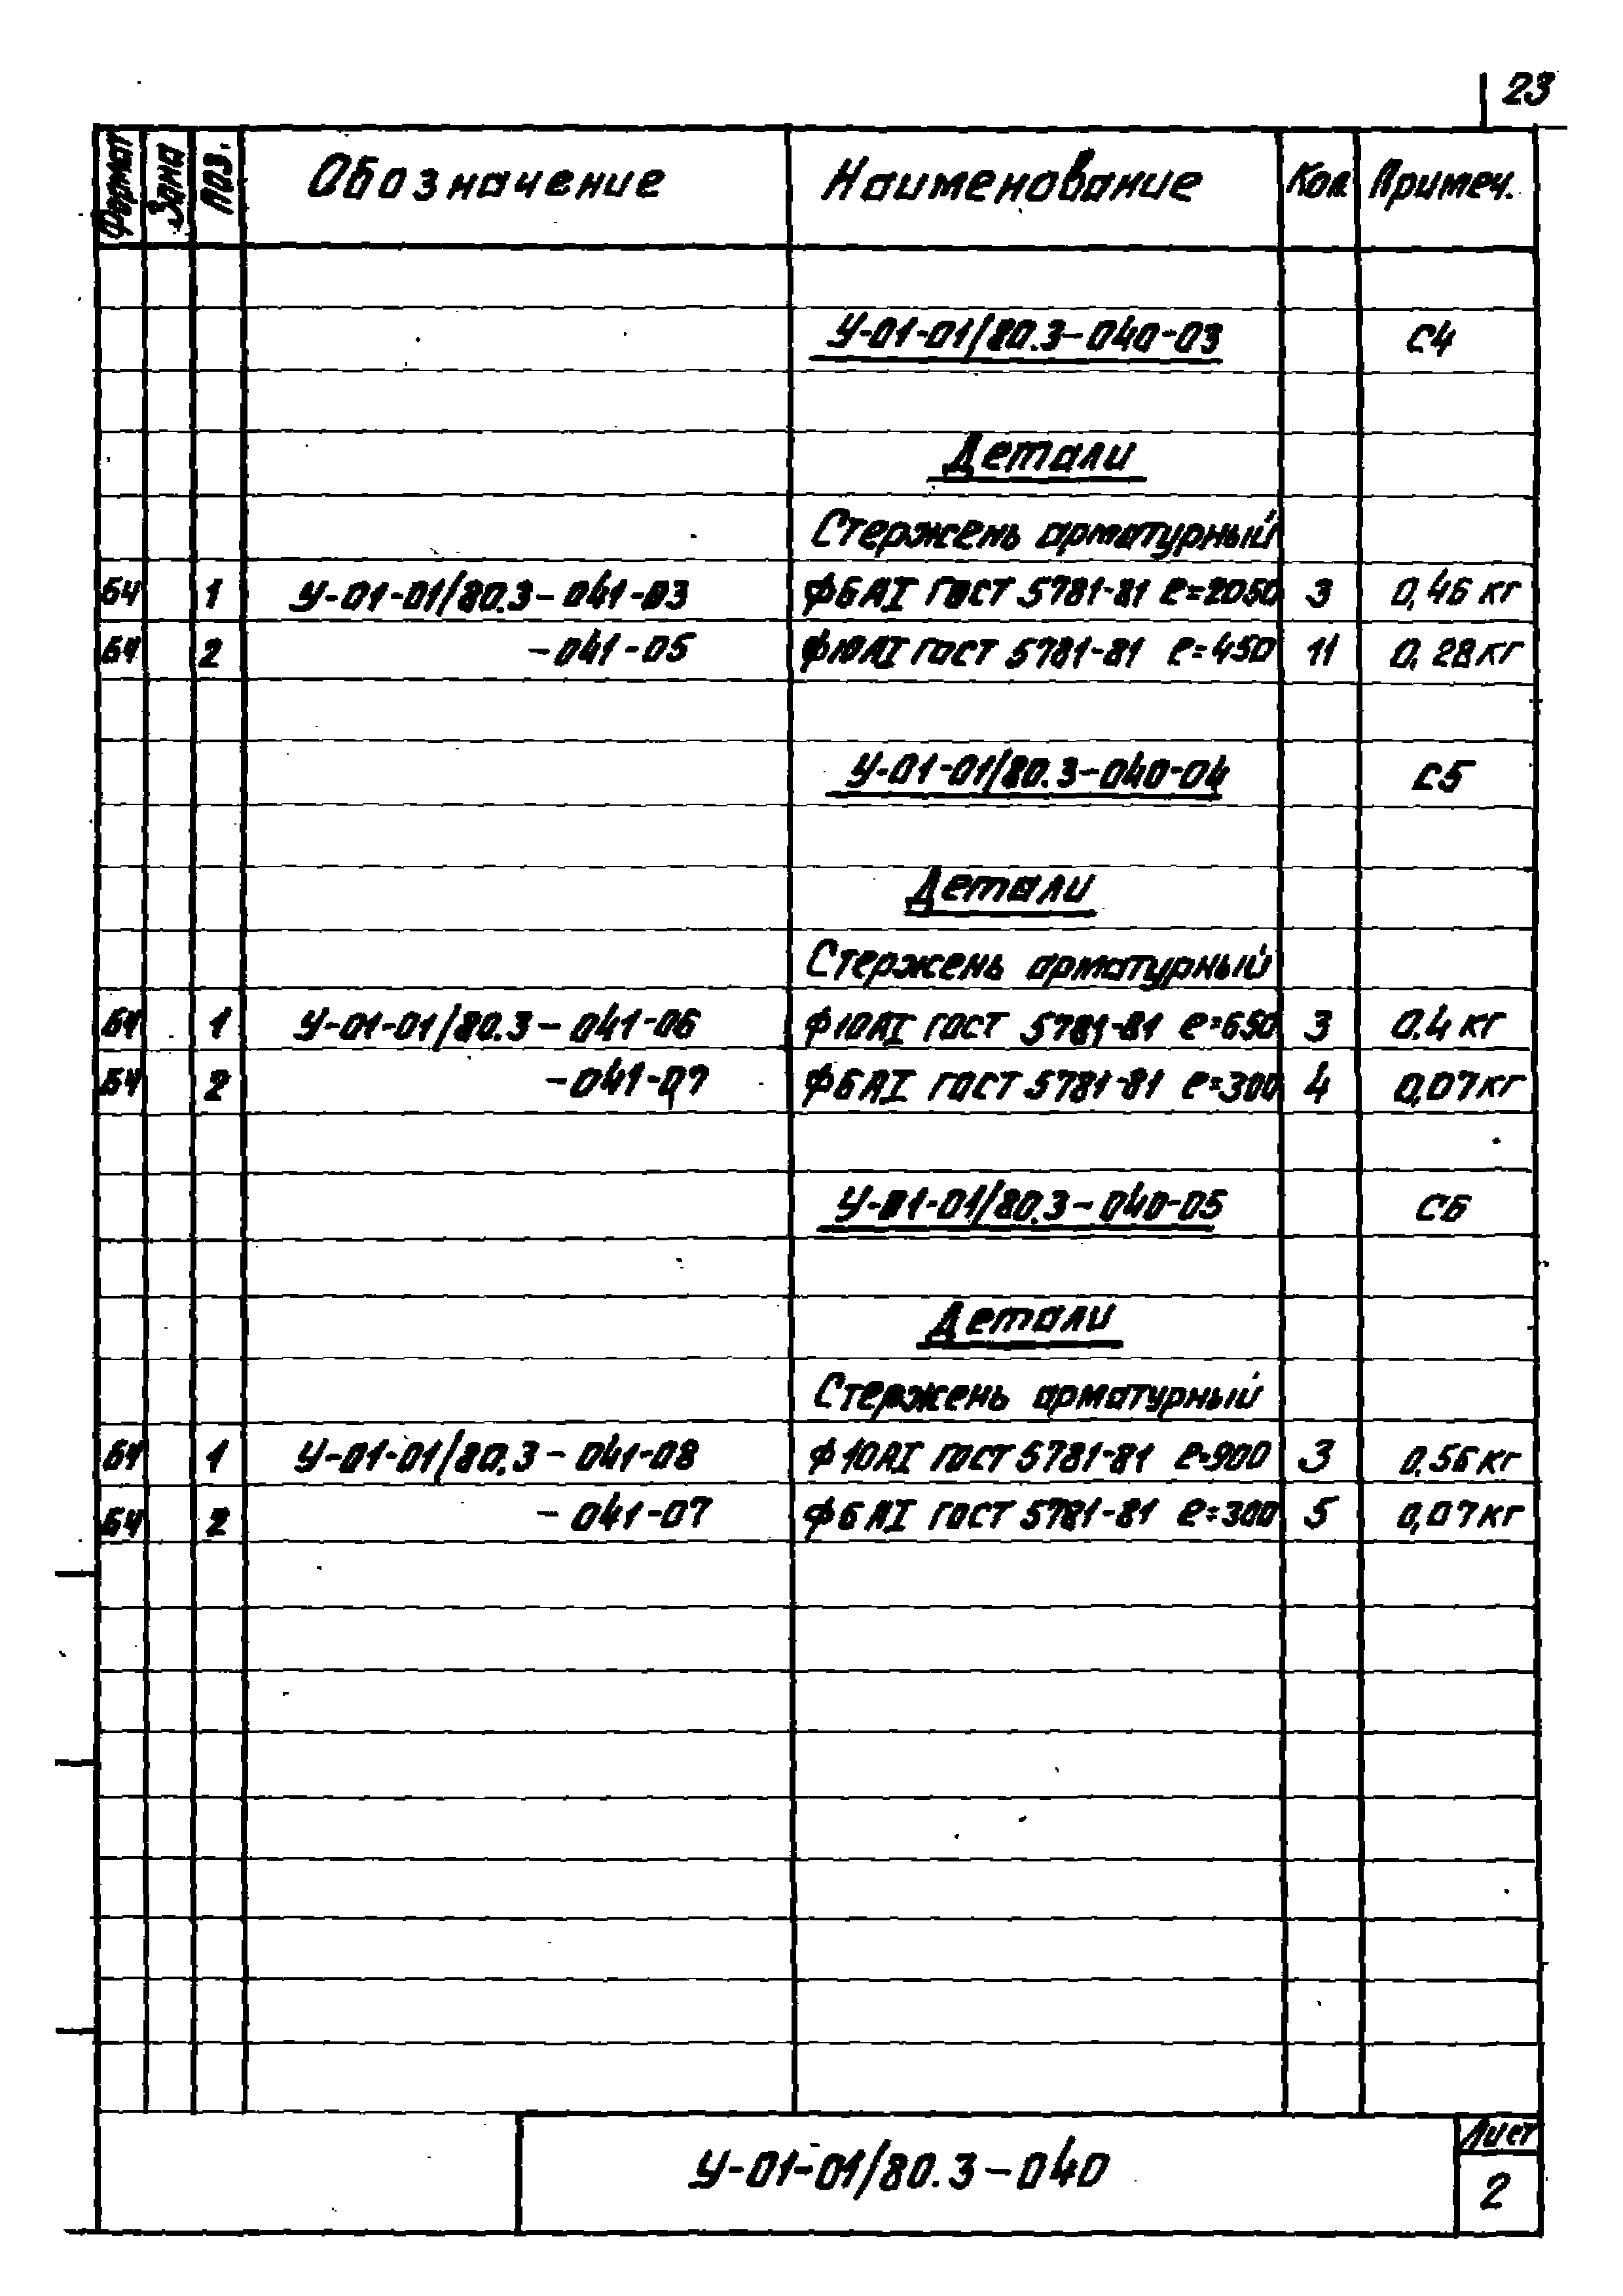 23
Формат Зона Поз. Обозначение Наименование Кол Примеч.
У-01-01/80.3-040-03 С4
Детали
Стержень арматурный
БЧ 1 У-01-01/80.3-041-03 Ф6АI ГОСТ 5781-81 ℓ=2050 3 0,46 кг
БЧ 2 -041-05 Ф10АI ГОСТ 5781-81 ℓ=450 11 0,28 кг
У-01-01/80.3-040-04 С5
Детали
Стержень арматурный
БЧ 1 У-01-01/80.3-041-06 Ф10АI ГОСТ 5781-81 ℓ=650 3 0.4 кг
БЧ 2 -041-07 Ф6АI ГОСТ 5781-81 ℓ=300 4 0,07 кг
У-01-01/80.3-040-05 С6
Детали
Стержень арматурный
БЧ 1 У-01-01/80.3-041-08 Ф10АI ГОСТ 5781-81 ℓ=900 3 0.56 кг
БЧ 2 -041-07 Ф6АI ГОСТ 5781-81 ℓ=300 5 0,07 кг
У-01-01/80.3-040
Лист
2